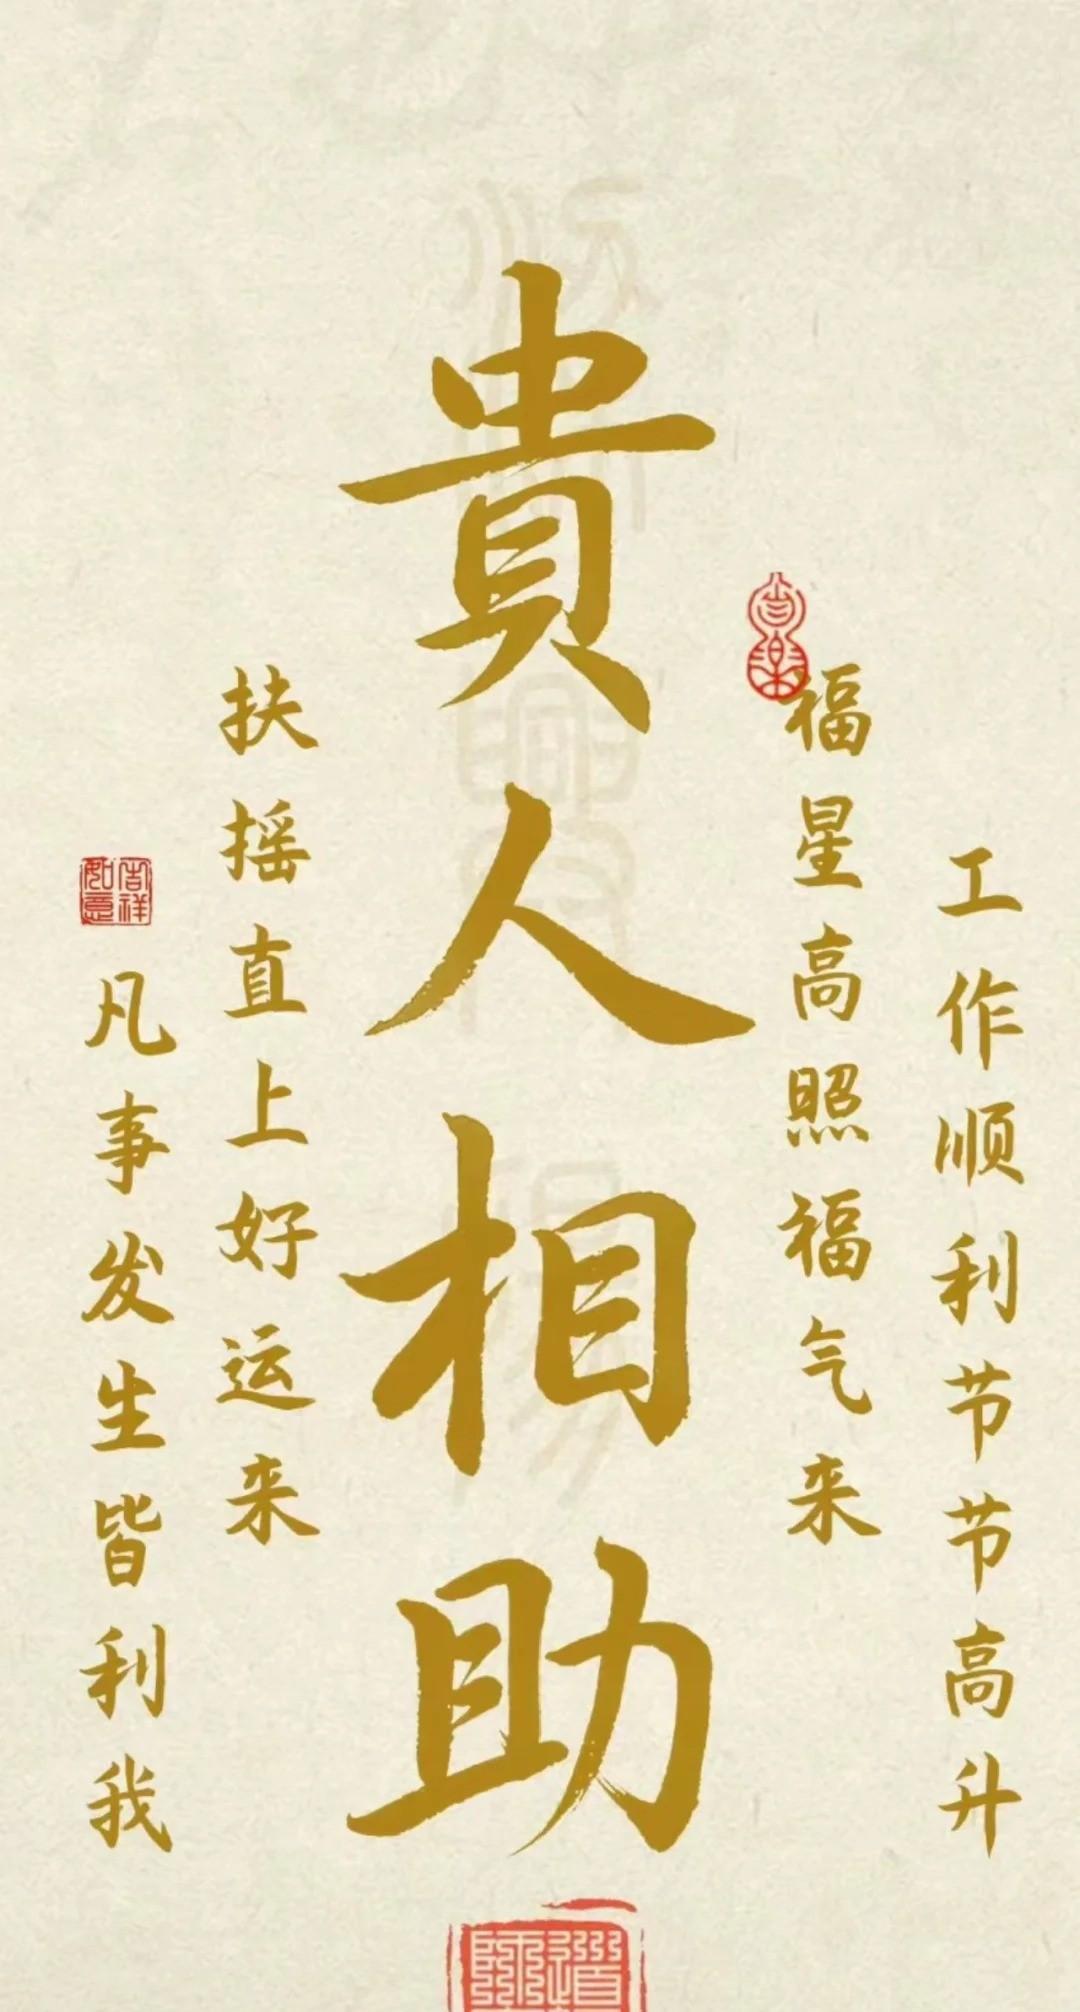 工作顺利节节高升
福星高照福气来
貴人相助
扶摇直上好运来
凡事发生皆利我
吉祥如意